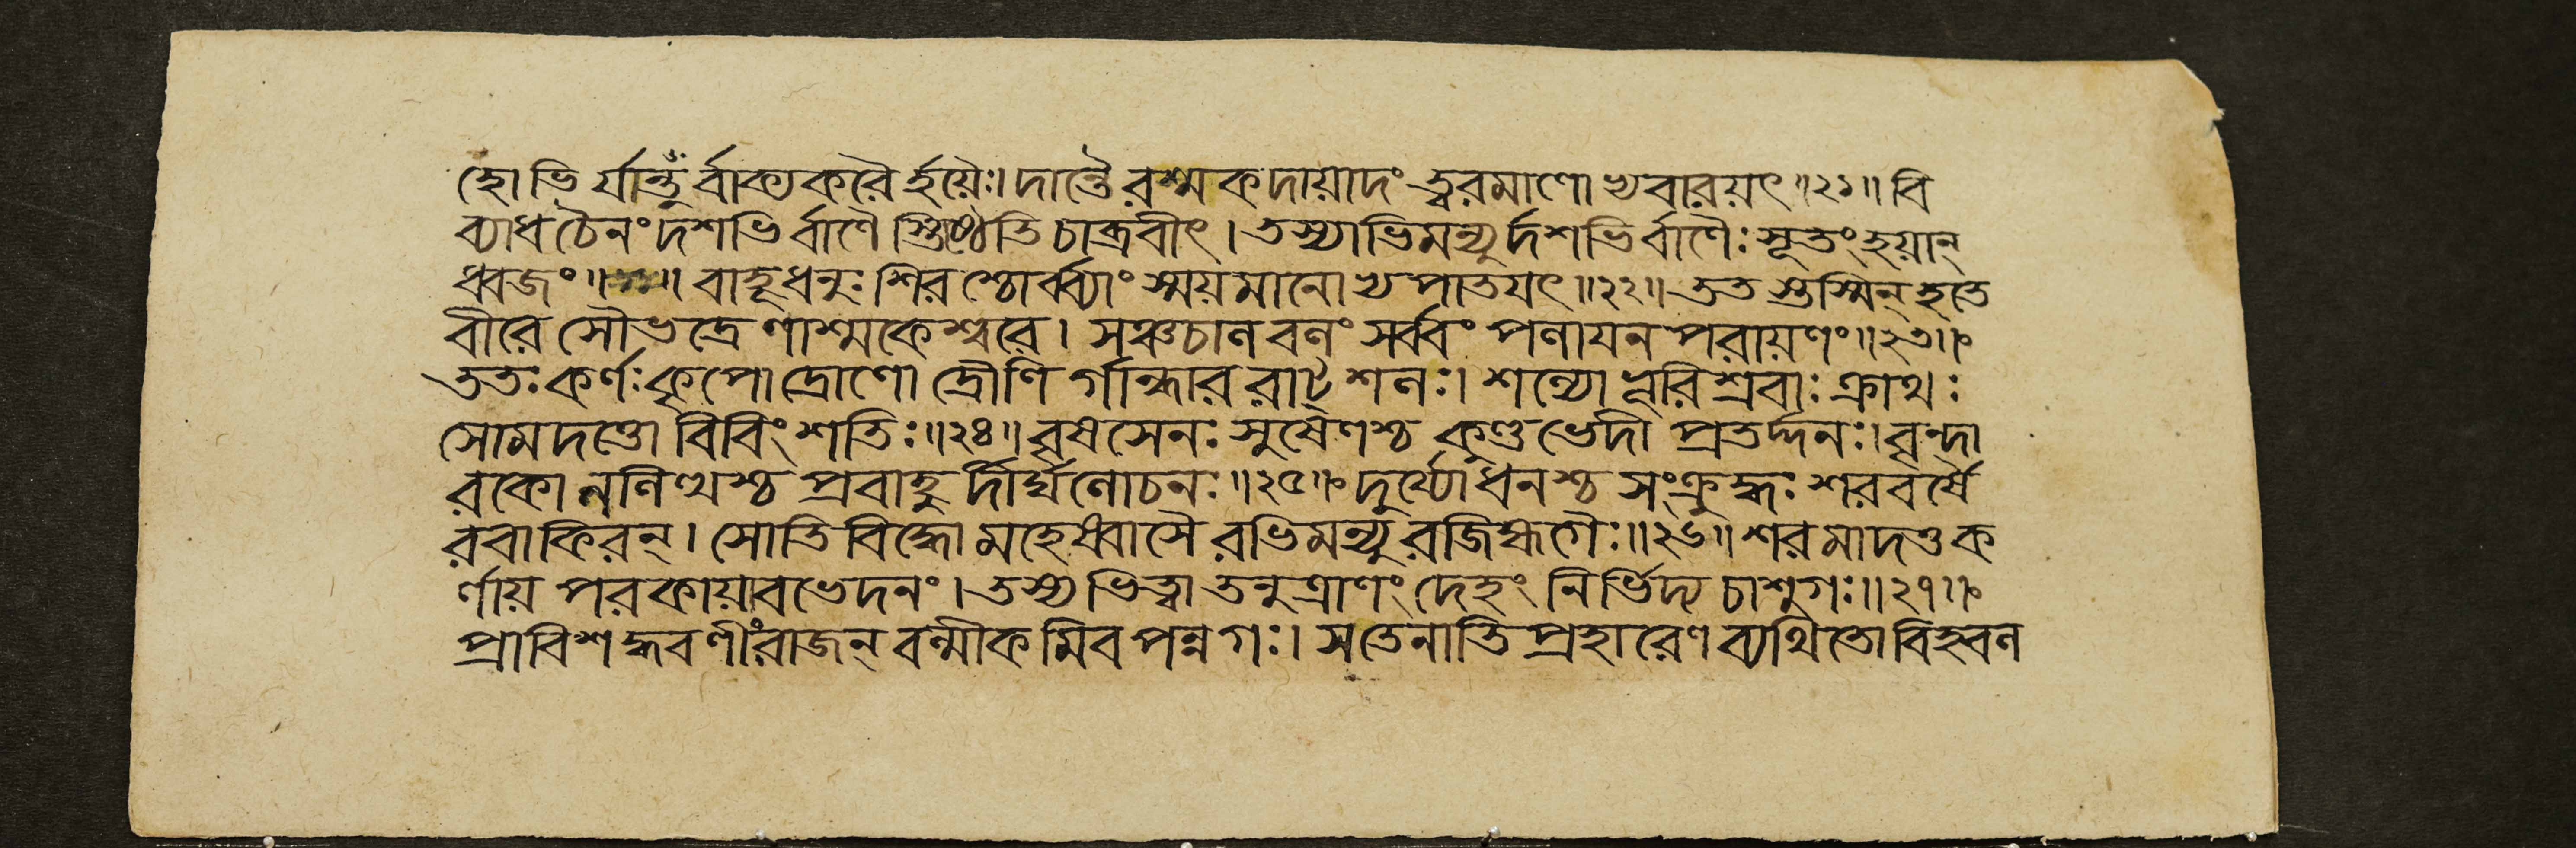 হোভি র্যান্তুঁ র্বাক্যকরৈ র্হয়ৈঃ। দান্তৈরশ্মকদায়াদং ত্বরমাণোভ্যবারয়ৎ॥২১॥ বি
ব্যাধ চৈনং দশভি র্বাণৈ স্তিষ্ঠেতি চাব্রবীৎ। তস্যাভিমন্যুর্দশভির্বাণৈঃ সূতং হয়ান্
ধ্বজং॥ ॥ বাহূ ধনুঃ শিরশ্চোর্ব্ব্যাং স্ময়মানোভ্যপাতযৎ॥২২॥ তত স্তস্মিন্ হতে
বীরে সৌভদ্রেণাশ্মকেশ্বরে। সঞ্চচাল বলং সর্ব্বং পলাযনপরায়ণং॥২৩॥
ততঃ কর্ণঃ কৃপো দ্রোণো দ্রৌণি র্গান্ধাররাট্ শলঃ। শল্যো ভূরিশ্রবাঃ ক্রাথঃ
সোমদত্তো বিবিংশতিঃ॥২৪॥ বৃষসেনঃ সুষেণশ্চ কুণ্ডভেদী প্রতর্দ্দনঃ। বৃন্দা
রকো ললিত্থশ্চ প্রবাহু র্দীর্ঘলোচনঃ॥২৫॥ দুর্য্যোধনশ্চ সংক্রুদ্ধঃ শরবর্ষৈ
রবাকিরন্। সোতিবিদ্ধো মহেষ্বাসৈ রভিমন্যু রজিহ্মগৈঃ॥২৬॥ শরমাদত্ত ক
র্ণায় পরকায়াবভেদনং। তস্য ভিত্ত্বা তনুত্রাণং দেহং নির্ভিদ্য চাশুগঃ॥২৭॥
প্রাবিশদ্ধরণীং রাজন্ বল্মীকমিব পন্নগঃ। স তেনাতিপ্রহারেণ ব্যথিতো বিহ্বল